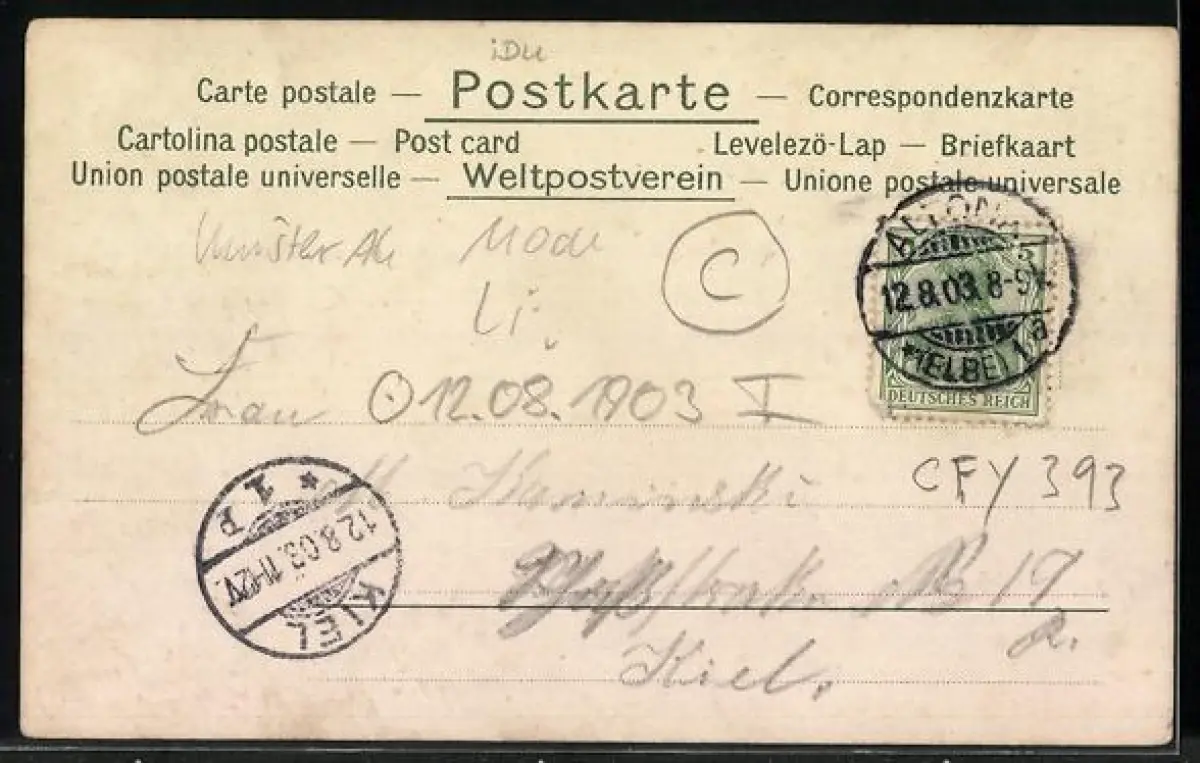 iDu
Carte postale — Postkarte — Correspondenzkarte
Cartolina postale — Post card Levelezö-Lap — Briefkaart
Union postale universelle — Weltpostverein — Unione postale universale
Künstler AK Mode
C
Li
ALTONA
12.8.03. 8-9V.
*(ELBE) 1 a
DEUTSCHES REICH
Frau
12.08.1903 I
Kaminski
CFY 393
No 19
Kiel.
KIEL
12.8.03. 11-12V.
* 1 P